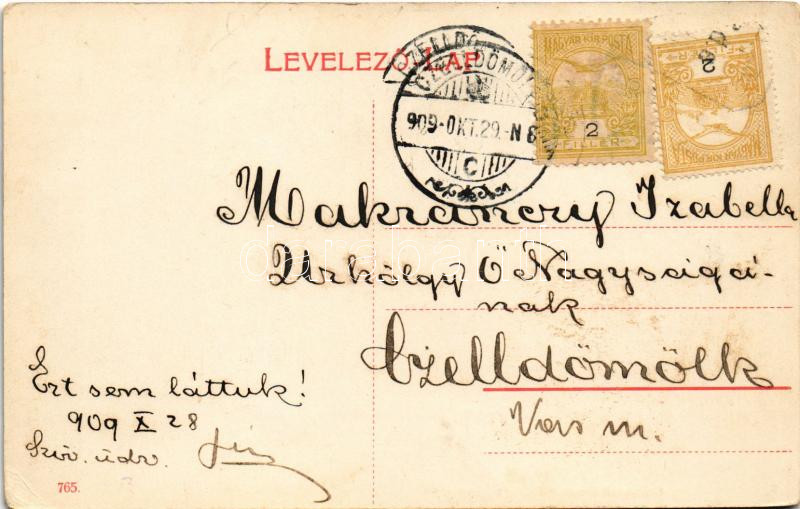 LEVELEZŐ-LAP
CZELLDÖMÖLK
909-OKT.29.-N8
C
MAGYAR KIR. POSTA
2
FILLÉR
MAGYAR KIR. POSTA
2
Makranczy Izabella
Urhölgy Ő Nagyságá-
nak
Czelldömölk
Vas m.
Ezt sem láttuk!
909 X 28
Szív. üdv.
765.
darabanth